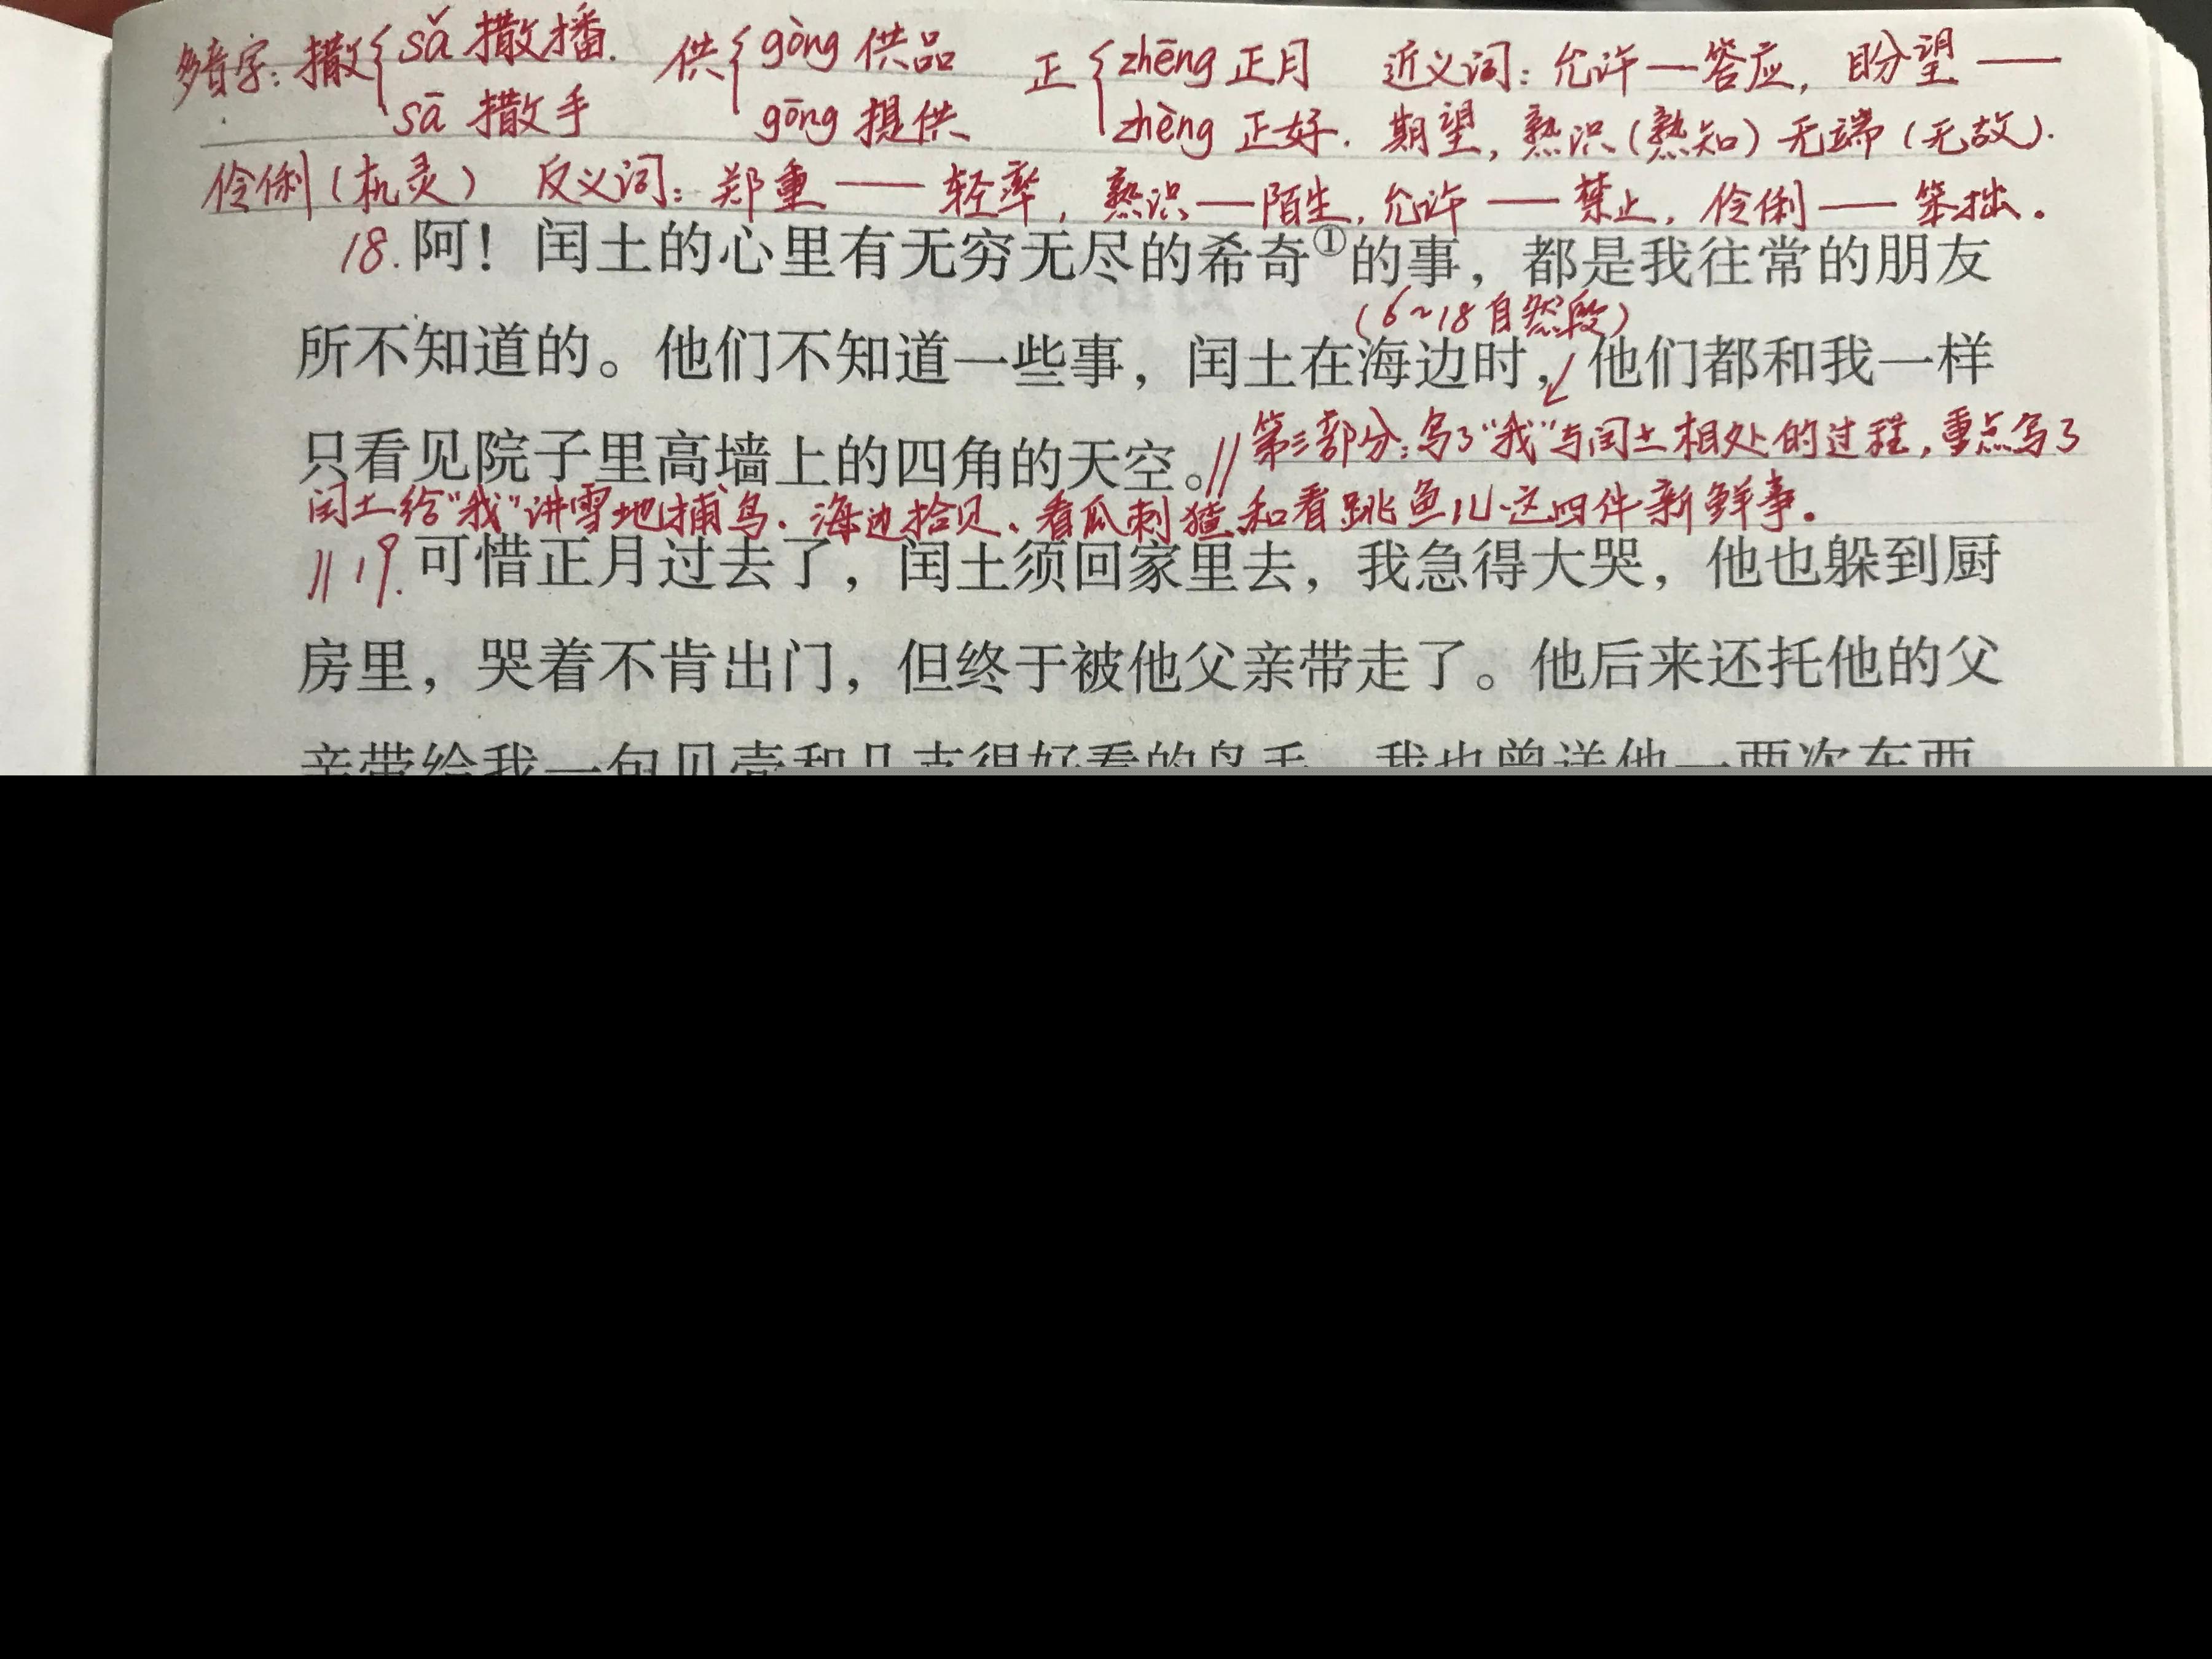 多音字：撒{sǎ 撒播. 供{gòng 供品 正{zhēng 正月 近义词：允许—答应，盼望——
sā 撒手 gōng 提供 zhèng 正好. 期望，熟识（熟知）无端（无故）.
伶俐（机灵） 反义词：郑重——轻率，熟识—陌生，允许——禁止，伶俐——笨拙。
18.阿！闰土的心里有无穷无尽的希奇①的事，都是我往常的朋友
（6~18自然段）
所不知道的。他们不知道一些事，闰土在海边时，他们都和我一样
只看见院子里高墙上的四角的天空。//第三部分：写了“我”与闰土相处的过程，重点写了
闰土给“我”讲雪地捕鸟、海边拾贝、看瓜刺猹和看跳鱼儿这四件新鲜事。
//19.可惜正月过去了，闰土须回家里去，我急得大哭，他也躲到厨
房里，哭着不肯出门，但终于被他父亲带走了。他后来还托他的父
亲带给我一包贝壳和几支很好看的鸟毛，我也曾送他一两次东西，